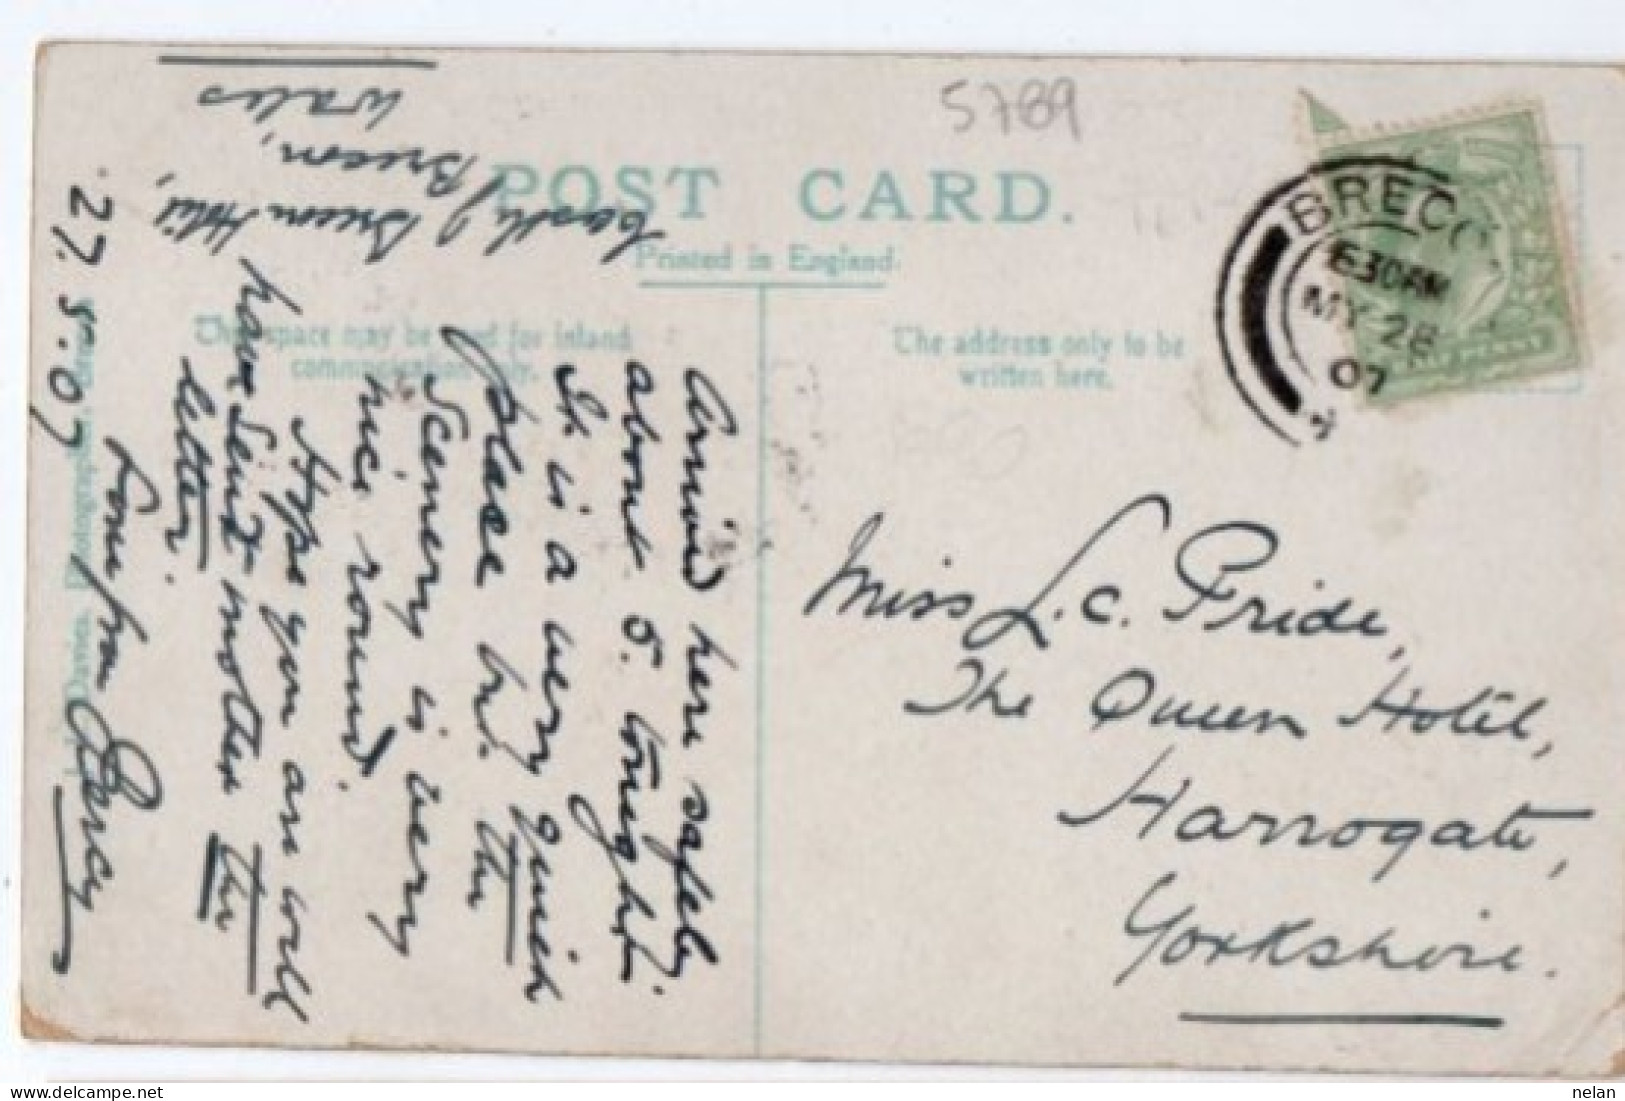 5789
POST CARD.
Printed in England.
This space may be used for inland
communication only.
The address only to be
written here.
BRECO
6 30 AM
MY 28
07
Miss L. C. Pride,
The Queen Hotel,
Harrogate,
Yorkshire.
Castle of Brecon Hotel,
Brecon,
Wales
27.5.07
Arrived here safely
about 5. tonight.
It is a very quiet
place but the
scenery is very
nice round.
Hope you are well
have sent mother the
letter.
Love from Percy
Davies, Photographer, Brecon
nelan